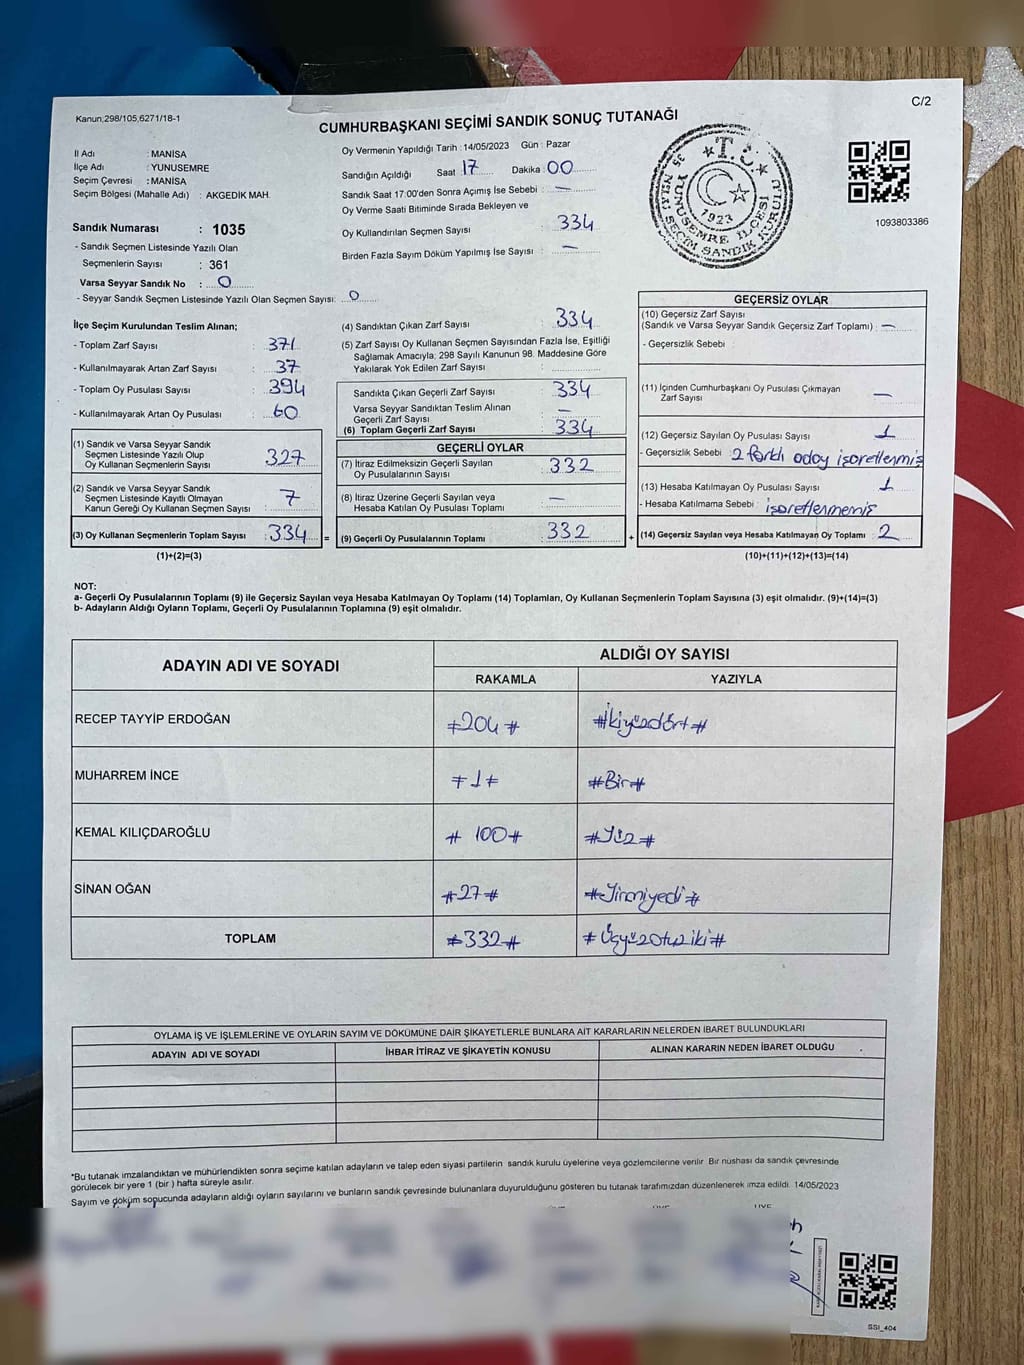 C/2
Kanun;298/105,6271/18-1
CUMHURBAŞKANI SEÇİMİ SANDIK SONUÇ TUTANAĞI
İl Adı : MANİSA
İlçe Adı : YUNUSEMRE
Seçim Çevresi : MANİSA
Seçim Bölgesi (Mahalle Adı) : AKGEDİK MAH.
Sandık Numarası : 1035
- Sandık Seçmen Listesinde Yazılı Olan
Seçmenlerin Sayısı : 361
Varsa Seyyar Sandık No : 0
- Seyyar Sandık Seçmen Listesinde Yazılı Olan Seçmen Sayısı: 0
Oy Vermenin Yapıldığı Tarih : 14/05/2023 Gün : Pazar
Sandığın Açıldığı Saat 17 Dakika 00
Sandık Saat 17:00'den Sonra Açımış İse Sebebi : —
Oy Verme Saati Bitiminde Sırada Bekleyen ve
Oy Kullandırılan Seçmen Sayısı : 334
Birden Fazla Sayım Döküm Yapılmış İse Sayısı : —
T.C.
1923
35
YUNUSEMRE İLÇESİ
NOLU SEÇİM SANDIK KURULU
1093803386
İlçe Seçim Kurulundan Teslim Alınan;
- Toplam Zarf Sayısı : 371
- Kullanılmayarak Artan Zarf Sayısı : 37
- Toplam Oy Pusulası Sayısı : 394
- Kullanılmayarak Artan Oy Pusulası : 60
(1) Sandık ve Varsa Seyyar Sandık
Seçmen Listesinde Yazılı Olup
Oy Kullanan Seçmenlerin Sayısı : 327
(2) Sandık ve Varsa Seyyar Sandık
Seçmen Listesinde Kayıtlı Olmayan
Kanun Gereği Oy Kullanan Seçmen Sayısı : 7
(3) Oy Kullanan Seçmenlerin Toplam Sayısı : 334 =
(1)+(2)=(3)
(4) Sandıktan Çıkan Zarf Sayısı : 334
(5) Zarf Sayısı Oy Kullanan Seçmen Sayısından Fazla İse, Eşitliği
Sağlamak Amacıyla, 298 Sayılı Kanunun 98. Maddesine Göre
Yakılarak Yok Edilen Zarf Sayısı :
Sandıkta Çıkan Geçerli Zarf Sayısı : 334
Varsa Seyyar Sandıktan Teslim Alınan
Geçerli Zarf Sayısı : —
(6) Toplam Geçerli Zarf Sayısı : 334
GEÇERLİ OYLAR
(7) İtiraz Edilmeksizin Geçerli Sayılan
Oy Pusulalarının Sayısı : 332
(8) İtiraz Üzerine Geçerli Sayılan veya
Hesaba Katılan Oy Pusulası Toplamı : —
(9) Geçerli Oy Pusulalarının Toplamı : 332 +
GEÇERSİZ OYLAR
(10) Geçersiz Zarf Sayısı
(Sandık ve Varsa Seyyar Sandık Geçersiz Zarf Toplamı) : —
- Geçersizlik Sebebi :
(11) İçinden Cumhurbaşkanı Oy Pusulası Çıkmayan
Zarf Sayısı : —
(12) Geçersiz Sayılan Oy Pusulası Sayısı : 1
- Geçersizlik Sebebi : 2 farklı aday işaretlenmiş
(13) Hesaba Katılmayan Oy Pusulası Sayısı : 1
- Hesaba Katılmama Sebebi : işaretlenmemiş
(14) Geçersiz Sayılan veya Hesaba Katılmayan Oy Toplamı : 2
(10)+(11)+(12)+(13)=(14)
NOT:
a- Geçerli Oy Pusulalarının Toplamı (9) ile Geçersiz Sayılan veya Hesaba Katılmayan Oy Toplamı (14) Toplamları, Oy Kullanan Seçmenlerin Toplam Sayısına (3) eşit olmalıdır. (9)+(14)=(3)
b- Adayların Aldığı Oyların Toplamı, Geçerli Oy Pusulalarının Toplamına (9) eşit olmalıdır.
ADAYIN ADI VE SOYADI ALDIĞI OY SAYISI
RAKAMLA YAZIYLA
RECEP TAYYİP ERDOĞAN #204# #İkiyüzdört#
MUHARREM İNCE #1# #Bir#
KEMAL KILIÇDAROĞLU #100# #Yüz#
SİNAN OĞAN #27# #Yirmiyedi#
TOPLAM #332# #Üçyüzotuziki#
OYLAMA İŞ VE İŞLEMLERİNE VE OYLARIN SAYIM VE DÖKÜMÜNE DAİR ŞİKAYETLERLE BUNLARA AİT KARARLARIN NELERDEN İBARET BULUNDUKLARI
ADAYIN ADI VE SOYADI İHBAR İTİRAZ VE ŞİKAYETİN KONUSU ALINAN KARARIN NEDEN İBARET OLDUĞU
*Bu tutanak imzalandıktan ve mühürlendikten sonra seçime katılan adayların ve talep eden siyasi partilerin sandık kurulu üyelerine veya gözlemcilerine verilir. Bir nüshası da sandık çevresinde
görülecek bir yere 1 (bir) hafta süreyle asılır.
Sayım ve döküm sonucunda adayların aldığı oyların sayılarını ve bunların sandık çevresinde bulunanlara duyurulduğunu gösteren bu tutanak tarafımızdan düzenlenerek imza edildi. 14/05/2023
SSI_404